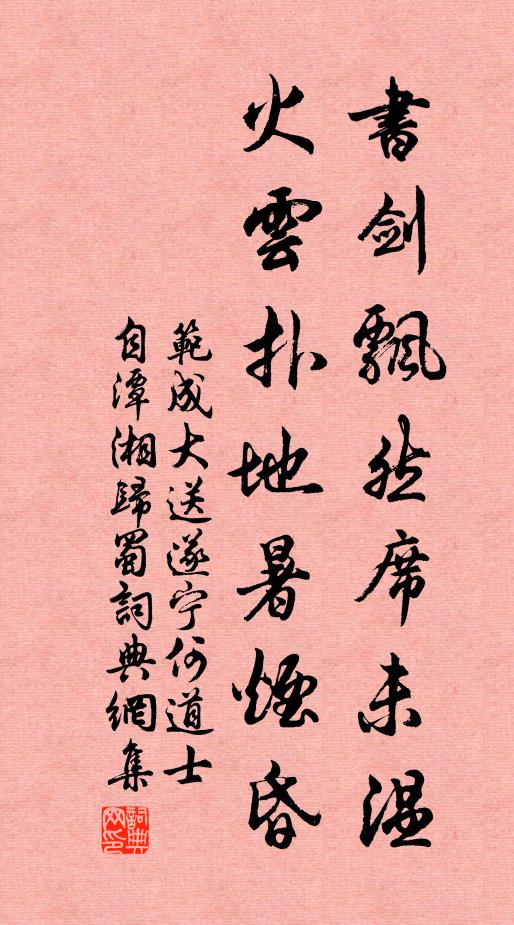 書劍飄然席未溫
火雲扑地暑煙昏
範成大送遂宁何道士
自潭湘歸蜀詞典網集
詞典网印